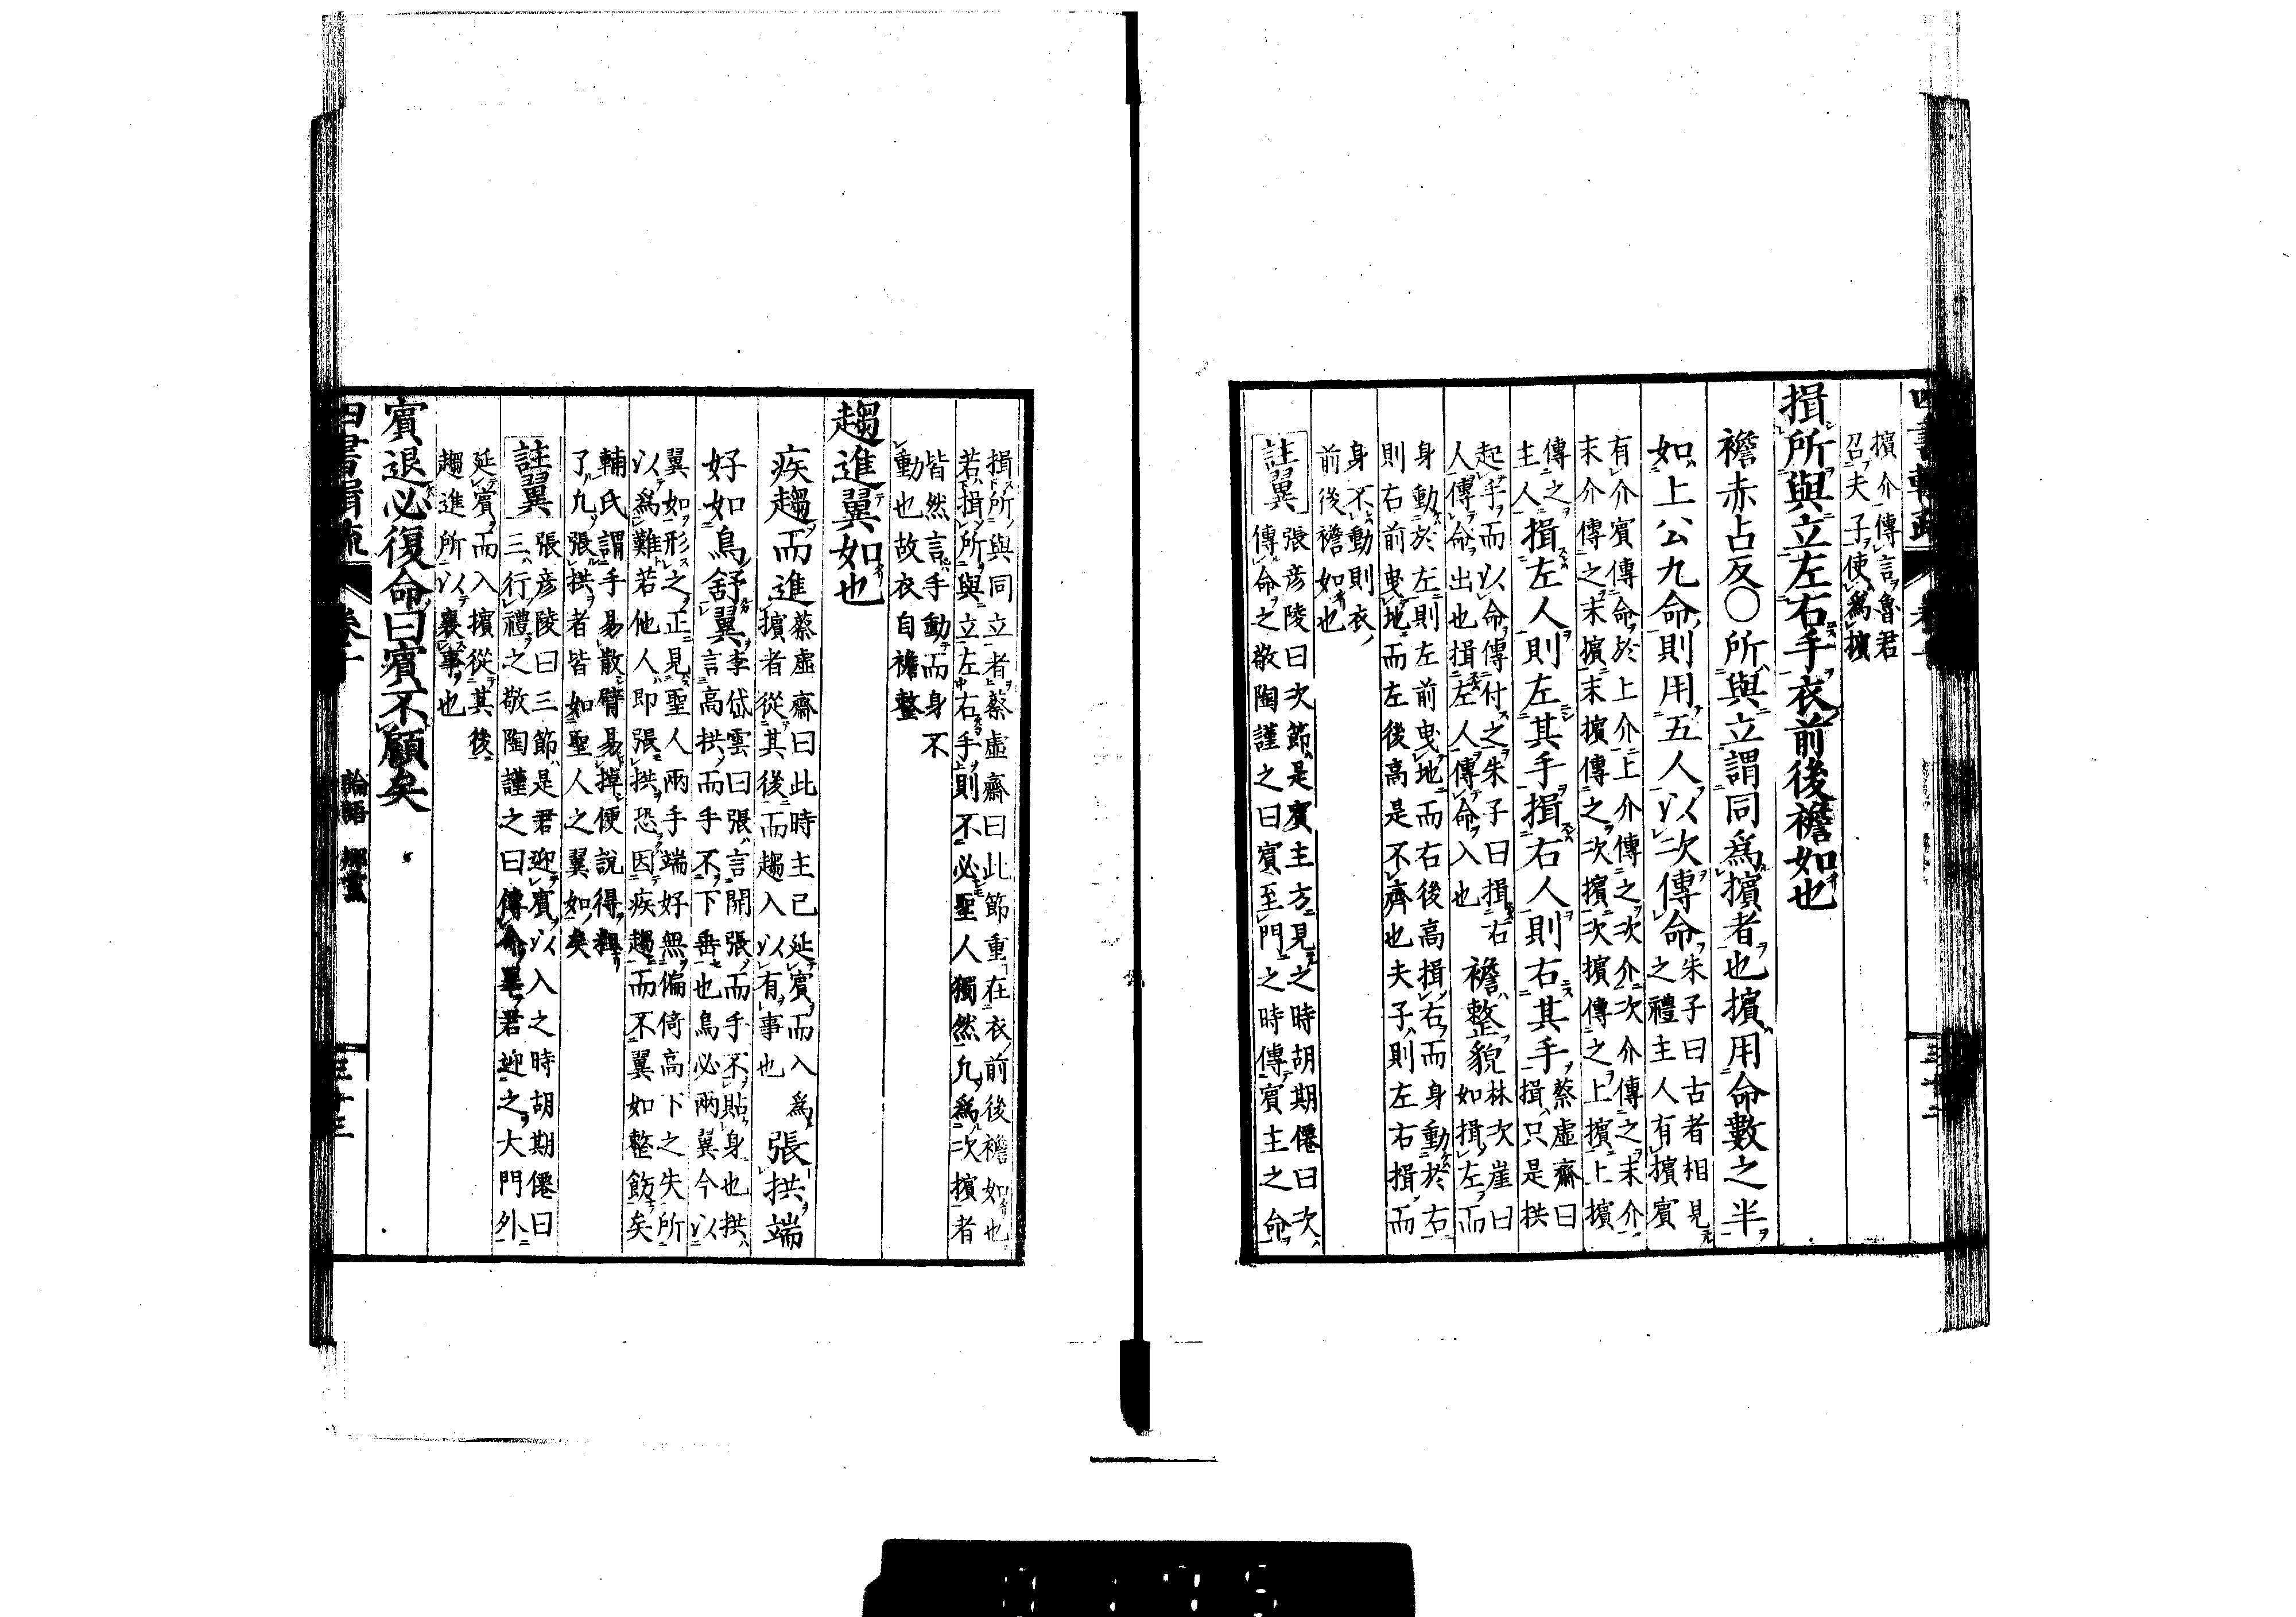 擯介傳言魯君
召夫子使爲擯
揖所與立左右手衣前後襜如也
襜赤占反○所與立謂同爲擯者也擯用命數之半
如上公九命則用五人以次傳命
朱子曰古者相見主人有擯賓
之禮主人有擯賓
有介賓傳命於上介上介傳之次介次介傳之末介
末介傳之末擯末擯傳之次擯次擯傳之上擯上擯
傳之
主人
揖左人則左其手揖右人則右其手
蔡虛齋曰
揖只是拱
起手而以命傳付之朱子曰揖右
人傳命出也揖左人傳命入也
襜整貌
林次崖曰
如揖左而
身動於左則左前曳地而右後高揖右而身動於右
則右前曳地而左後高是不齊也夫子則左右揖而
身不動則衣
前後襜如也
註翼
張彦陵曰次節是賓主方見之時胡期僊曰次
傳命之敬陶謹之曰賓至門之時傳賓主之命
揖所與同立者蔡虛齋曰此節重在衣前後襜如也
若揖所與立左右手則不必聖人獨然凡爲次擯者
皆然言手動而身不
動也故衣自襜整
趨進翼如也
疾趨而進
蔡虛齋曰此時主已延賓而入爲
擯者從其後而趨入以有事也
張拱端
好如鳥舒翼
李岱雲曰張言開張而手不貼身也拱
言高拱而手不下垂也鳥必兩翼今以
翼如形之正見聖人兩手端好無偏倚高下之失所
以爲難若他人即張拱恐因疾趨而不翼如整飭矣
輔氏謂手易散臂易掉便說得粗
了凡張拱者皆如聖人之翼如矣
註翼
張彦陵曰三節是君迎賓以入之時胡期僊曰
三行禮之敬陶謹之曰傳命畢君迎之大門外
延賓而入擯從其後
趨進所以襄事也
賓退必復命曰賓不顧矣
四書輯疏
卷十
論語
鄉黨
三十三